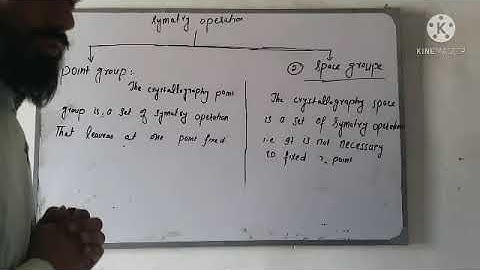 symatry operation
point group:
The crystallography poin
group is a set of symatry operation
That leavens at one point fixed
② space groupe
The crystallography space
is a set of symatry operation
i.e it is not necessary
to fixed point
KINEMASTER